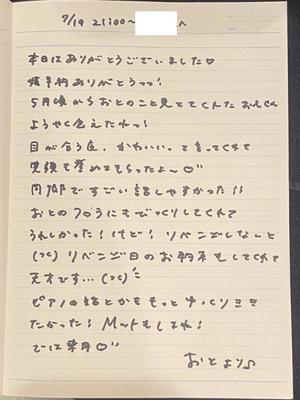 7/19 21:00〜 へ
本日はありがとうございました♡
嬢予約ありがとうっっ!
5月頃からおとのこと見ててくれたお兄さん
ようやく会えたねっ!
目が合う度、かわいい。て言ってくれて
笑顔も褒めてもらったよ〜♡"
同郷ですごい話しやすかった!!
おとのフロうにもびっくりしてくれて
うれしかった!けど! リベンジしないと
リベンジ日のお約束もしてくれて
天才です…
ピアノの話とかをもっとゆっくり
たかった! Mットもしてね!
では来月♡"
おとより♪